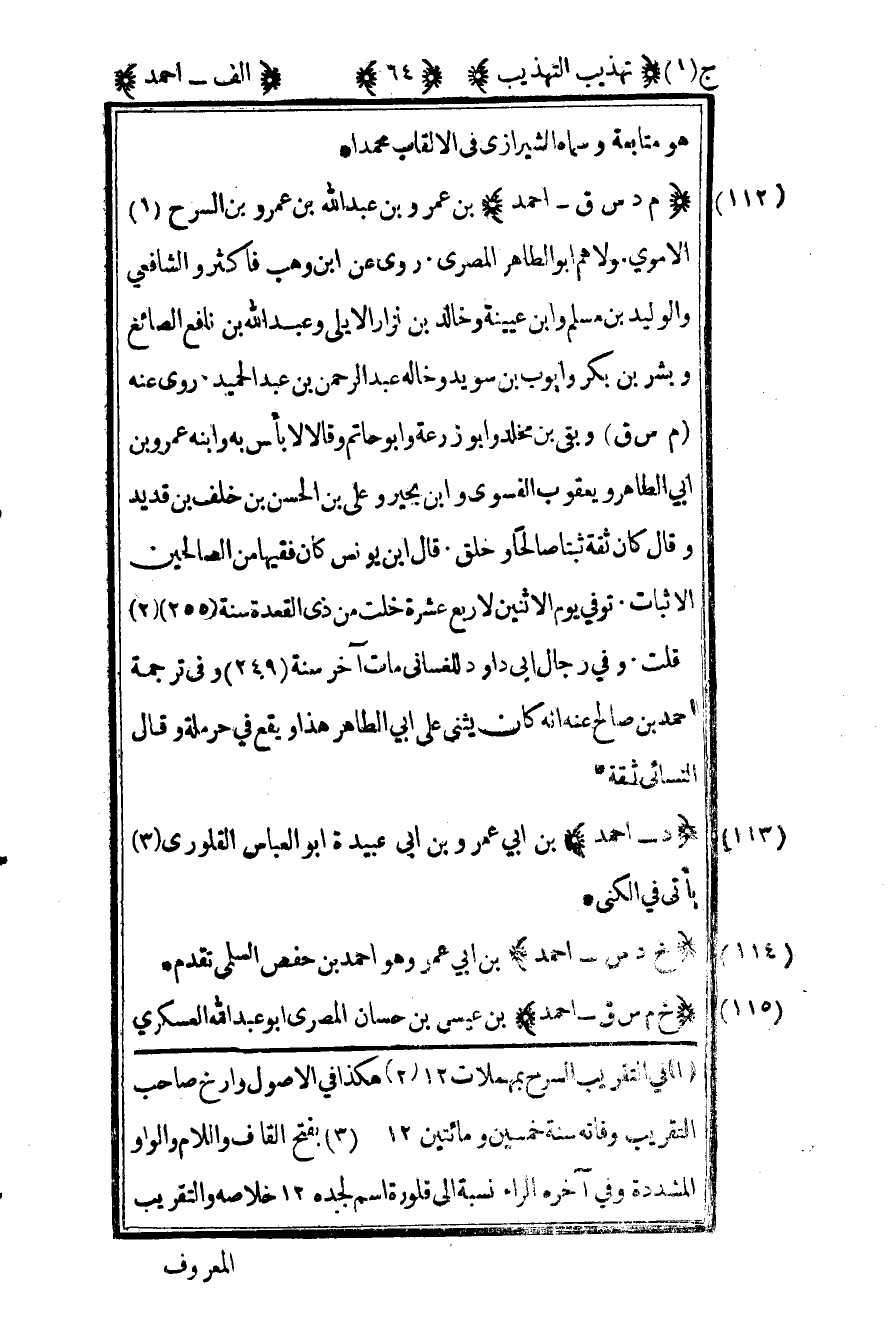 ج(١) ﴿ تهذيب التهذيب ﴾ ﴿ ٦٤ ﴾ ﴿ الف ـ احمد ﴾
هو متابعة وسماه الشيرازى فى الالقاب محمدا *
(١١٢) ﴿ م د س ق ـ احمد ﴾ بن عمرو بن عبدالله بن عمرو بن السرح (١)
الاموي. ولاهم ابوالطاهر المصرى. روى عن ابن وهب فاكثر و الشافعي
والوليد بن مسلم وابن عيينة وخالد بن نزار الايلى وعبدالله بن نافع الصائغ
وبشر بن بكر وايوب بن سويد وخاله عبدالرحمن بن عبدالحميد. روى عنه
(م س ق) وبقى بن مخلد وابو زرعة وابوحاتم وقالا لا بأس به وابنه عمرو بن
ابي الطاهر ويعقوب الفسوى وابن بجير وعلى بن الحسن بن خلف بن قديد
وقال كان ثقة ثبتا صالحا وخلق. قال ابن يونس كان فقيها من الصالحين
الاثبات. توفي يوم الاثنين لاربع عشرة خلت من ذى القعدة سنة (٢٥٥) (٢)
قلت. وفي رجال ابى داود للغسانى مات آخر سنة (٢٤٩) وفى ترجمة
احمد بن صالح عنه انه كان يثنى على ابي الطاهر هذا ويقع في حرملة وقال
النسائى ثقة *
(١١٣) ﴿ د ـ احمد ﴾ بن ابي عمرو بن ابى عبيدة ابو العباس القلورى (٣)
يأتى في الكنى *
(١١٤) ﴿ خ د س ـ احمد ﴾ بن ابي عمر وهو احمد بن حفص السلمى تقدم *
(١١٥) ﴿ خ م س ق ـ احمد ﴾ بن عيسى بن حسان المصرى ابوعبدالله العسكري
في التقريب السرح بمهملات ١٢ (٢) هكذا في الاصول وارخ صاحب
التقريب وفاته سنة خمسين ومائتين ١٢ (٣) بفتح القاف واللام والواو
المشددة وفي آخره الراء نسبة الى قلورة اسم لجده ١٢ خلاصه والتقريب
المعروف